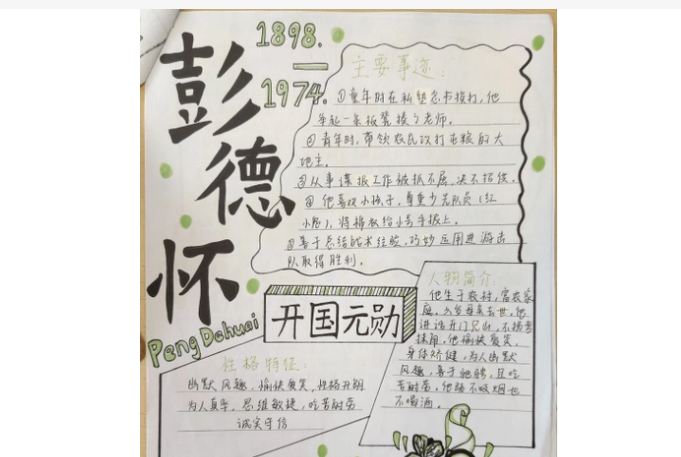 彭德怀
1898.
—
1974.
Peng Dehuai
主要事迹:
①童年时在私塾念书挨打,他
举起一条板凳揍了老师。
②青年时,带领农民攻打屯粮的大
地主。
③从事谍报工作被抓不屈,决不招供。
④他喜欢小孩子,尊重少先队员(红
小鬼),将棉衣给小号手披上。
⑤善于总结战术经验,巧妙应用进游击
队取得胜利。
开国元勋
人物简介:
他生于农村,富农家
庭,
他愉快爱笑,
身体矫健,为人幽默
风趣,善于驰骋,且吃
苦耐劳,他既不吸烟也
不喝酒。
性格特征:
幽默风趣,愉快爱笑,性格开朗
为人真率,思维敏捷,吃苦耐劳
诚实守信